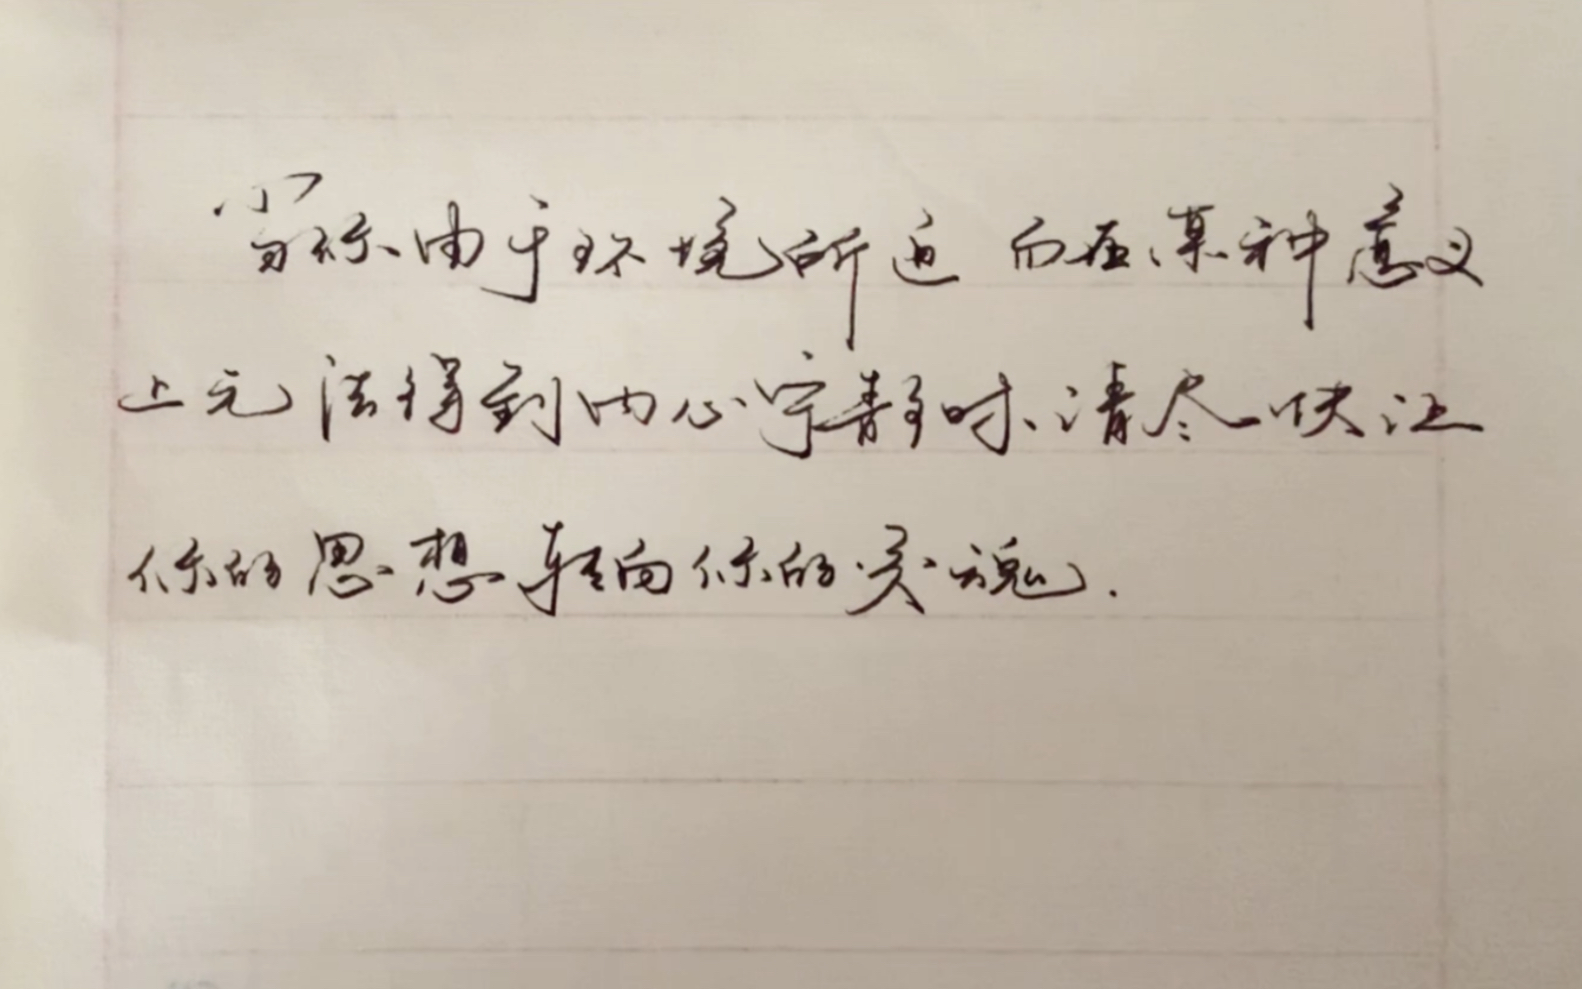 当你由于环境所迫 而在某种意义
上无法得到内心宁静时、请尽快让
你的思想转向你的灵魂.